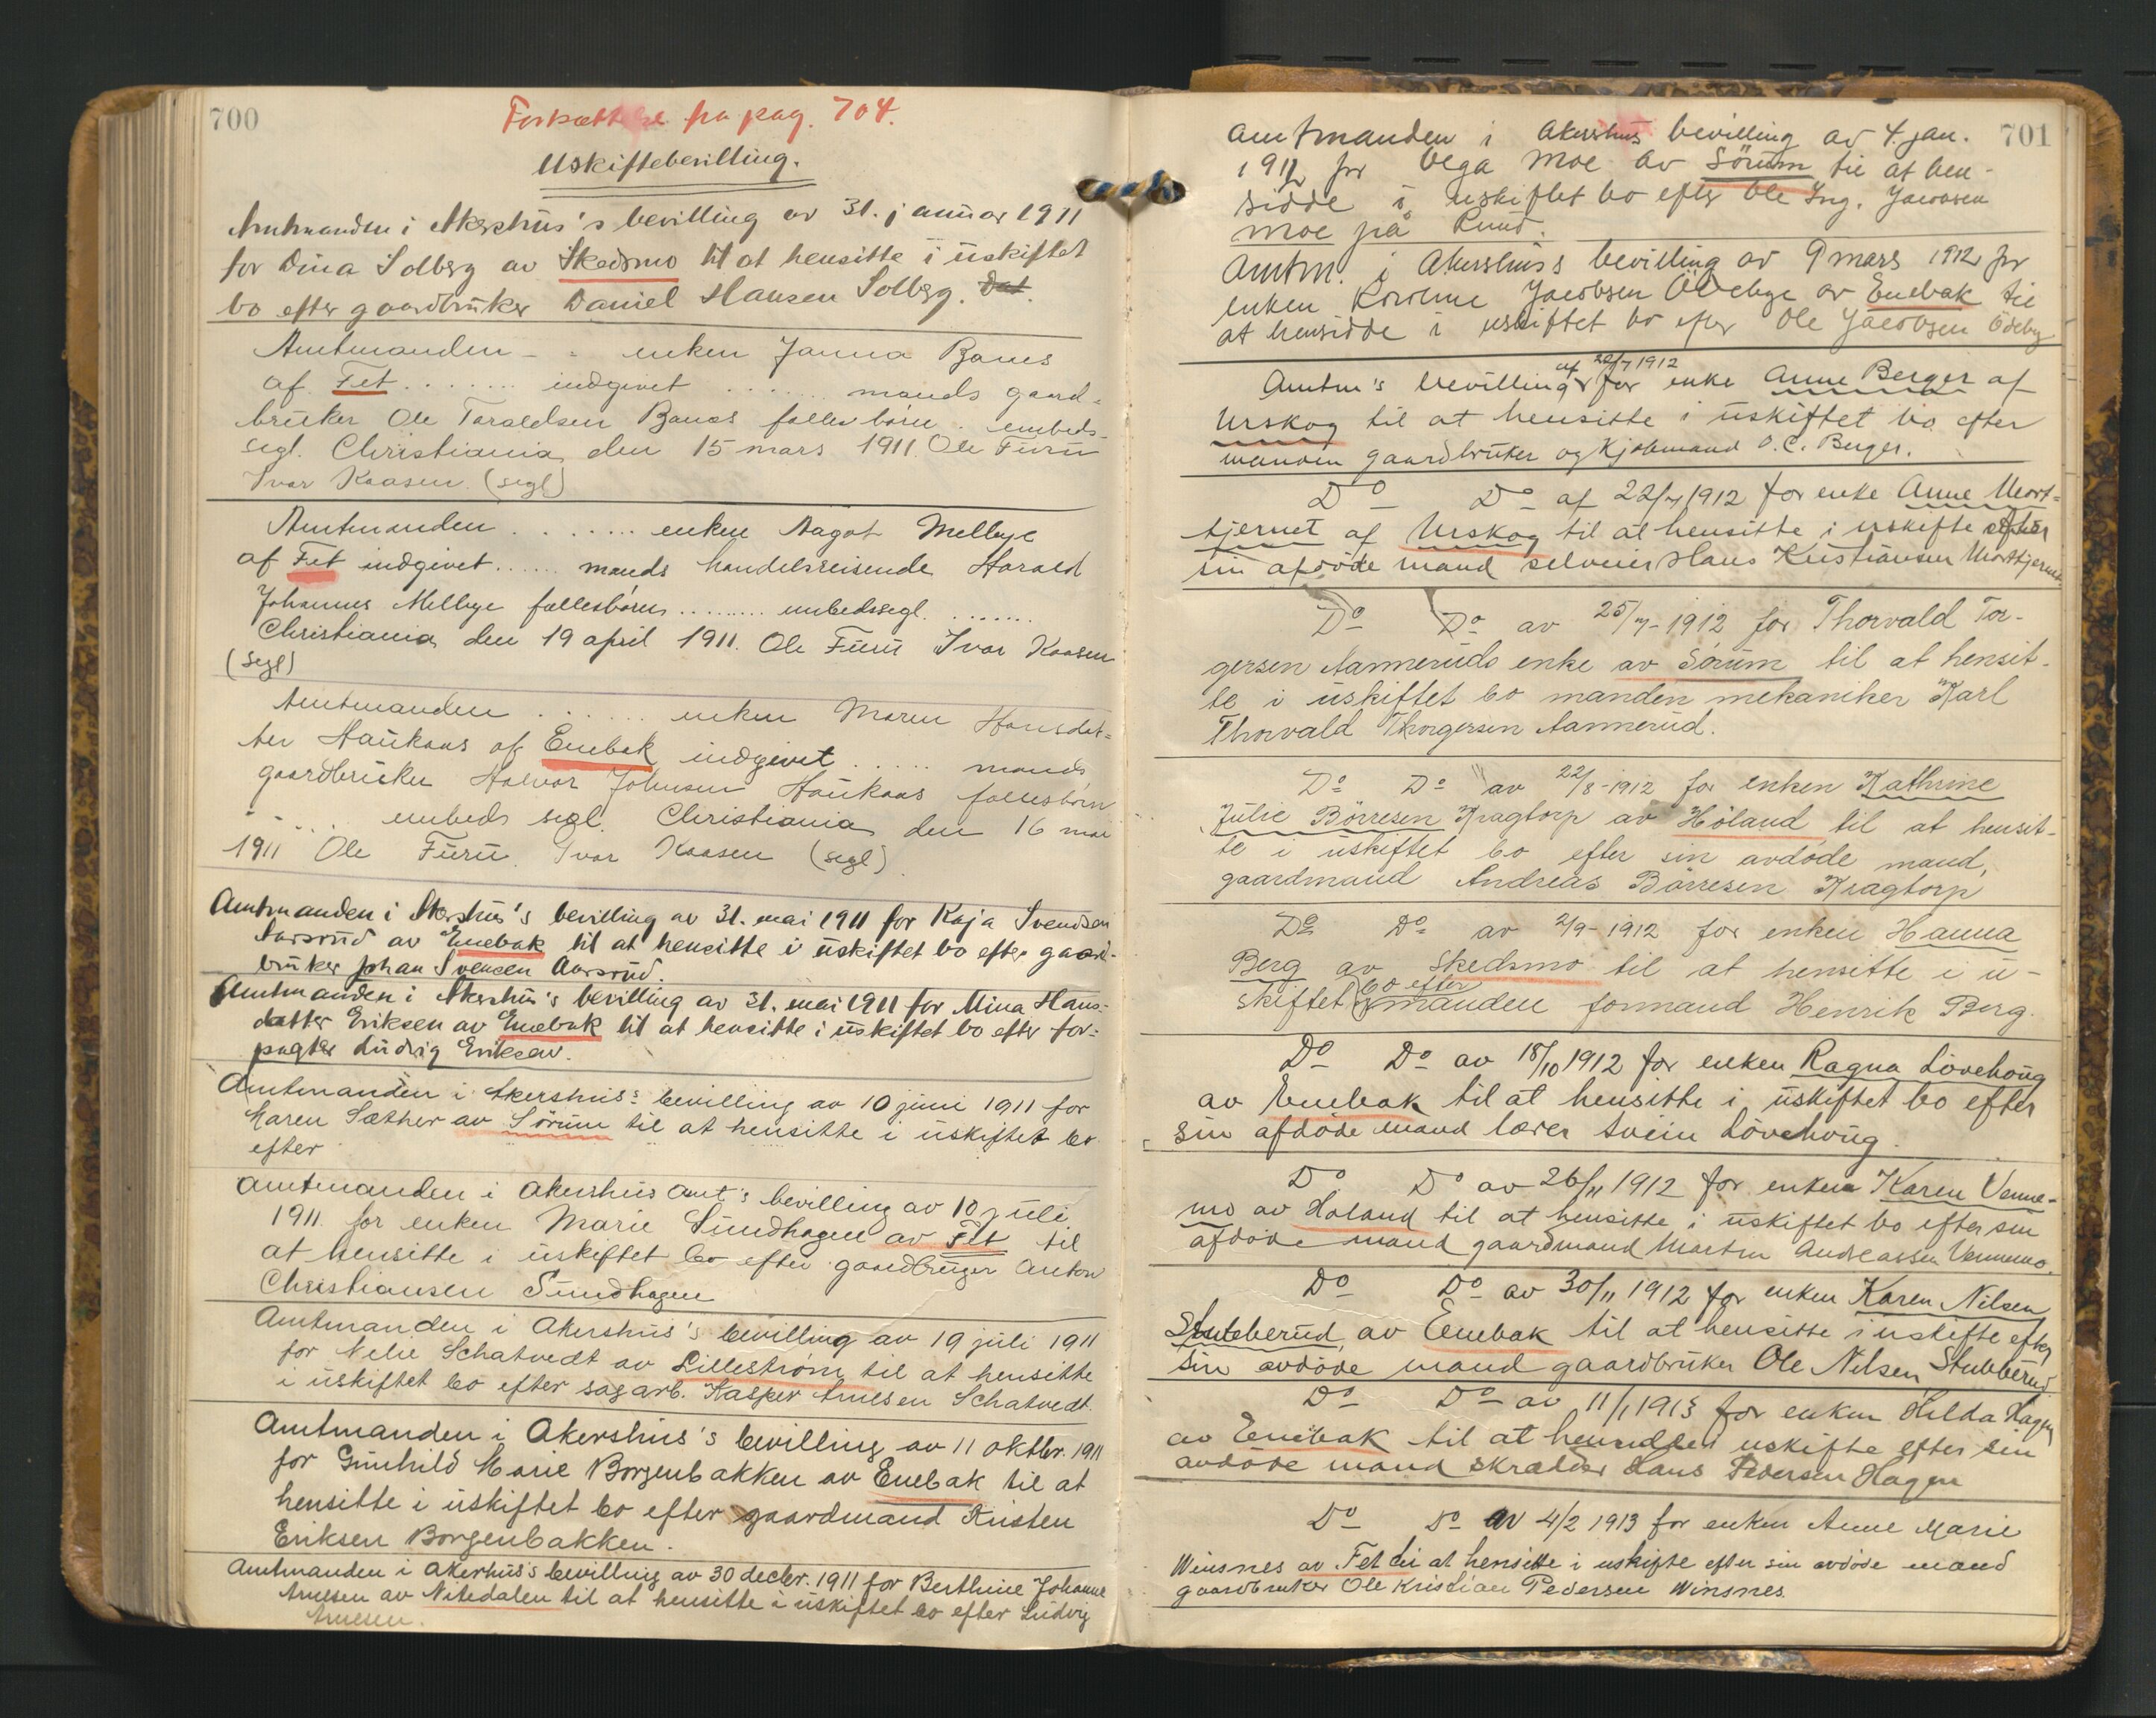 700
Fortsættelse fra pag. 704.
Uskiftebevilling.
Amtmanden i Akershus's bevilling av 31. januar 1911
for Dina Solberg av Skedsmo til at hensitte i uskiftet
bo efter gaardbruker Daniel Hansen Solberg. Dat.
Amtmanden - - enken Janna Banes
af Fet ....... indgivet ...... mands gaard-
bruker Ole Taraldsen Banas fælles børn . embeds-
segl. Christiania den 15 mars 1911. Ole Furu
Ivar Kaasen. (segl)
Amtmanden ....... enken Aagot Mellbye
af Fet indgivet ...... mands handelsreisende Harald
Johannes Mellbye fællesbørn ........ embedssegl. .......
Christiania den 19 april 1911. Ole Furu Ivar Kaasen
(segl)
Amtmanden ...... enken Maren Hansdat-
ter Haukaas af Enebak indgivet ..... mands
gaardbruker Halvor Johnsen Haukaas fællesbørn
..... embeds segl. Christiania den 16 mai
1911 Ole Furu. Ivar Kaasen (segl)
Amtmanden i Akershus's bevilling av 31. mai 1911 for Kaja Svendsen
Aarsrud av Enebak til at hensitte i uskiftet bo efter gaard-
bruker Johan Svensen Aarsrud.
Amtmanden i Akershus's bevilling av 31. mai 1911 for Mina Hans-
datter Eriksen av Enebak til at hensitte i uskiftet bo efter for-
pagter Ludvig Eriksen.
Amtmanden i Akershus's bevilling av 10 juni 1911 for
Maren Sæther av Sørum til at hensitte i uskiftet bo
efter
Amtmanden i Akershus amt's bevilling av 10 juli
1911 for enken Marie Sundhagen av Fet til
at hensitte i uskiftet bo efter gaardbruger Anton
Christiansen Sundhagen
Amtmanden i Akershus's bevilling av 19 juli 1911
for Nelie Schatvedt av Lillestrøm til at hensitte
i uskiftet bo efter sagarb. Kasper Arnesen Schatvedt.
Amtmanden i Akershus's bevilling av 11 oktbr. 1911
for Gunhild Marie Borgenbakken av Enebak til at
hensitte i uskiftet bo efter gaardmand Kristen
Eriksen Borgenbakken.
Amtmanden i Akerhus's bevilling av 30 decbr. 1911 for Berthine Johanne
Arnesen av Nitedalen til at hensitte i uskiftet bo efter Ludvig
Arnesen.
701
Amtmanden i Akershus bevilling av 4. jan.
1912 for Olga Moe av Sørum til at hen-
sidde i uskiftet bo efter Ole Ing. Jacobsen
Moe på Rund.
Amtm. i Akershus's bevilling av 9 mars 1912 for
enken Karoline Jacobsen Ödebye av Enebak til
at hensidde i uskiftet bo efter Ole Jacobsen Ödeby
Amtm's bevilling af 22/7 1912 for enke Anne Berger af
Urskog til at hensitte i uskiftet bo efter
manden gaardbruker og Kjøbmand O. C. Berger.
Do Do af 22/7 1912 for enke Anne Mort-
tjernet af Urskog til at hensitte i uskifte efter
sin afdöde mand selveier Hans Kristiansen Morttjernet.
Do Do av 25/7-1912 for Thorvald Tor-
gersen Aanneruds enke av Sørum til at hensit-
te i uskiftet bo manden mekaniker Karl
Thorvald Thorgersen Aannerud.
Do Do av 22/8-1912 for enken Kathrine
Julie Börresen Kragtorp av Höland til at hensit-
te i uskiftet bo efter sin avdöde mand,
gaardmand Andreas Börresen Kragtorp
Do Do av 2/9-1912 for enken Hanna
Berg av Skedsmo til at hensitte i u-
skiftet bo efter manden formand Henrik Berg.
Do Do av 18/10 1912 for enken Ragna Lövehoug
av Enebak til at hensitte i uskiftet bo efter
sin afdöde mand lærer Svein Lövehoug.
Do Do av 26/11 1912 for enken Karen Venne-
mo av Höland til at hensitte i uskiftet bo efter sin
afdöde mand gaardmand Martin Andreassen Vennemo.
Do Do av 30/11 1912 for enken Karen Nilsen
Stubberud av Enebak til at hensitte i uskifte efter
sin avdöde mand gaardbruker Ole Nilsen Stubberud.
Do Do av 11/1 1913 for enken Hilda Hagen
av Enebak til at hensidde i uskifte efter sin
avdöde mand skrædder Hans Pedersen Hagen
Do Do av 4/2 1913 for enken Anne Marie
Winsnes av Fet til at hensitte i uskifte efter sin avdöde mand
gaardbruker Ole Kristian Pedersen Winsnes.